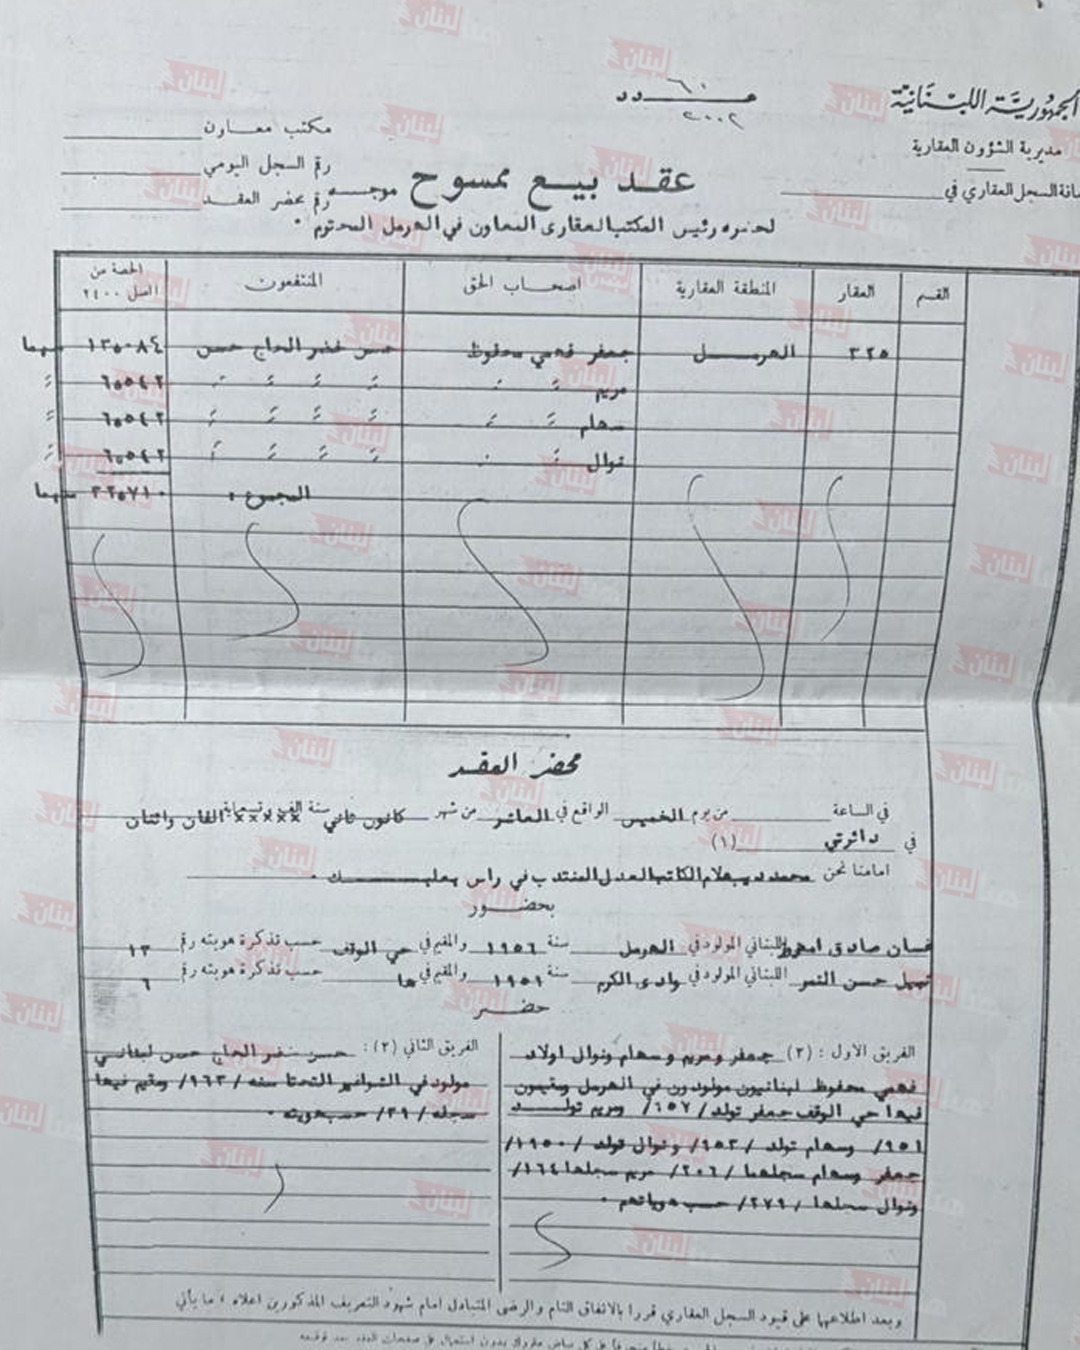 الجمهورية اللبنانية
مديرية الشؤون العقارية
أمانة السجل العقاري في
عدد ٦٠
٢٠٠٢
مكتب معاون
رقم السجل اليومي
رقم محضر العقد
عقد بيع ممسوح
موجه
لحضره رئيس المكتب العقاري المعاون في الهرمل المحترم .
القسم العقار المنطقة العقارية اصحاب الحق المنتفعون الحصة من اصل ٢٤٠٠
٣٢٥ الهرمل جعفر فهمي محفوظ حسن خضر الحاج حسن ١٣٥٠٨٤ سهما
مريم ٦٥٥٤٢
سهام ٦٥٥٤٢
نوال ٦٥٥٤٢
المجموع : سهما
محضر العقد
في الساعة من يوم الخميس الواقع في العاشر من شهر كانون ثاني سنة الف وتسعماية xxxxx الفان واثنان
في دائرتي (١)
امامنا نحن محمد ديب علام الكاتب العدل المنتدب في راس بعلبك .
بحضور
غسان صادق امهز اللبناني المولود في الهرمل سنة ١٩٥٦ والمقيم في حي الوقف حسب تذكرة هويته رقم ١٣
نهيل حسن النمر اللبناني المولود في وادي الكرم سنة ١٩٥١ والمقيم في ها حسب تذكرة هويته رقم ٦
حضر
الفريق الاول : (٢) جعفر ومريم وسهام ونوال اولاد
فهمي محفوظ لبنانيون مولودون في الهرمل ومقيمون
فيها حي الوقف جعفر تولد /٦٥٧/ ومريم تولد
٩٥١/ وسهام تولد /٩٥٣/ ونوال تولد /١٩٥٠/
جعفر وسهام سجلهما /٢٠٦/ مريم سجلها /١٦٤/
ونوال سجلها /٢٧٩/ حسب هوياتهم .
الفريق الثاني (٢) : حسن خضر الحاج حسن لبناني
مولود في الشواغير التحتا سنه /٩٦٣/ ومقيم فيها
سجله /٣٩/ حسب هويته .
وبعد اطلاعهما على قيود السجل العقاري قررا بالاتفاق التام والرضى المتبادل امام شهود التعريف المذكورين اعلاه ، ما يأتي